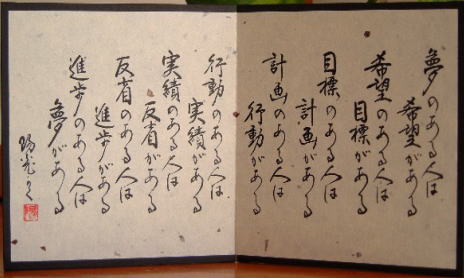 夢のある人は
希望がある
希望のある人は
目標がある
目標のある人は
計画がある
計画のある人は
行動がある
行動のある人は
実績がある
実績のある人は
反省がある
反省のある人は
進歩がある
進歩のある人は
夢がある